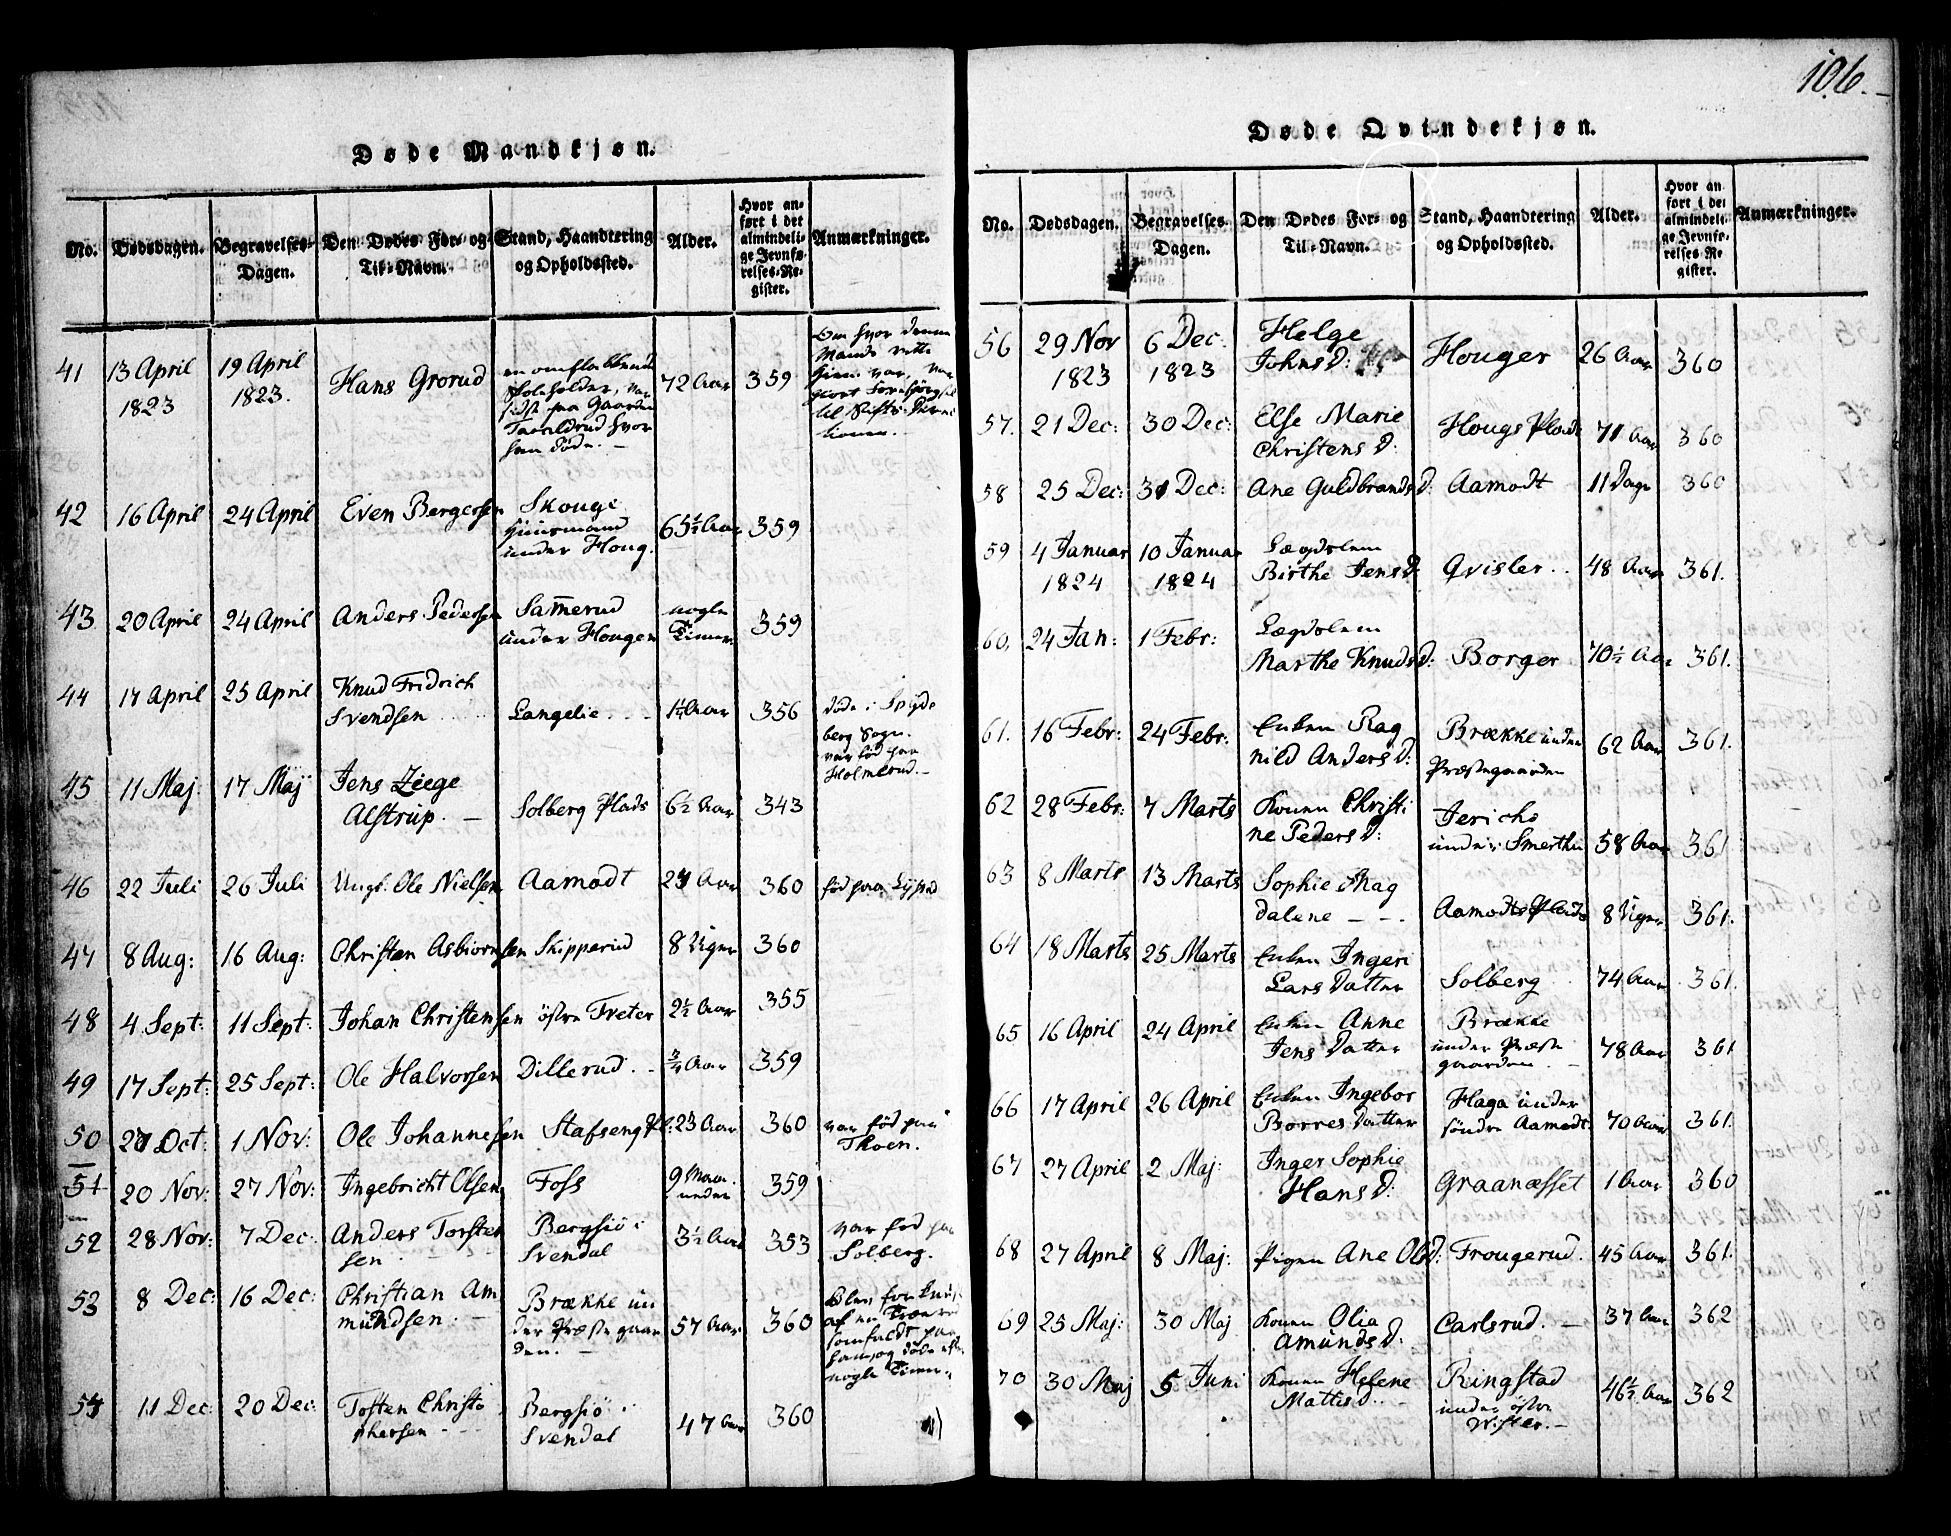 106.
Døde Mandkjøn.
No. Dødsdagen. Begravelses-Dagen. Den Dødes For- og Til-Navn. Stand, Haandtering og Opholdssted. Alder. Hvor anført i det almindelige Jevnførelses-Register. Anmærkninger.
41 13 April 1823 19 April 1823. Hans Grorud 72 Aar 359
42 16 April 24 April Even Bergersen Skouge Huusmand under Houg. 65½ Aar 359
43 20 April 24 April Anders Pedersen Sam̅erud under Hougen nogle Timer 359
44 17 April 25 April Knud Fridrich Svendsen Langelie 1¼ Aar 356 døde i Spydeberg Sogn. var fød paa Holmerud.
45 11 Maj 17 Maj Jens Ziege Alstrup. Solberg Plads 6½ Aar 343
46 22 Juli 26 Juli Ungk. Ole Nielsen Aamodt 23 Aar 360 fød paa
47 8 Aug: 16 Aug: Christen Asbiørnsen Skipperud 8 Uger 360
48 4 Sept: 11 Sept: Johan Christensen østre Treter 2½ Aar 355
49 17 Sept: 25 Sept: Ole Halvorsen Dillerud. ¾ Aar 359
50 27 Oct: 1 Nov: Ole Johannesen Stafseng Pl: 23 Aar 360 var fød paa Skoen.
51 20 Nov: 27 Nov: Ingebricht Olsen Foss 9 Maaneder 359
52 28 Nov: 7 Dec: Anders Torstensen Bergsiø i Svendal 3½ Aar 353 var fød paa Solberg.
53 8 Dec: 16 Dec: Christian Amundsen. Brække under Præstegaarden. 57 Aar 360
54 11 Dec: 20 Dec: Tosten Christophersen Bergsiø i Svendal 47 Aar 360
Døde Qvindekjøn.
No. Dødsdagen. Begravelses-Dagen. Den Dødes For- og Til-Navn. Stand, Haandtering og Opholdssted. Alder. Hvor anført i det almindelige Jevnførelses-Register. Anmærkninger.
56 29 Nov 1823 6 Dec: 1823 Helge Johns D: Houger 26 Aar 360
57. 21 Dec: 30 Dec: Else Marie Christens D: Hougs Plads 71 Aar 360
58 25 Dec: 31 Dec: Ane Guldbrands D: Aamodt 11 Dage 360
59 4 Januar 1824 10 Januar 1824 Lægdslem Birthe Jens D. Qvisler 48 Aar 361.
60. 24 Jan: 1 Febr: Lægdslem Marthe Knuds D: Borger 70½ Aar 361.
61. 16 Febr: 24 Febr: Enken Ragnild Anders D: Brække under Præstegaarden 62 Aar 361.
62 28 Febr: 7 Marts Konen Christine Peders D: Jericho under Smerthu 58 Aar 361
63 8 Marts 13 Marts Sophie Magdalene Aamodts Plads 8 Uger 361.
64 18 Marts 25 Marts Enken Ingeri Lars Datter Solberg 74 Aar 361.
65 16 April 24 April Enken Anne Jens Datter Brække under Præstegaarden 78 Aar 361
66 17 April 26 April Enken Ingebor Borres Datter Haga under søndre Aamodt 70 Aar 361.
67 27 April 2 Maj: Inger Sophie Hans D: Graanæsset 1 Aar 360
68 27 April 8 Maj: Pigen Ane Ols D: Frougerud. 45 Aar 361.
69 25 Maj: 30 Maj Konen Olia Amunds D: Carlsrud. 37 Aar 362
70 30 Maj 5 Juni Konen Helene Mattis D. Ringstad under østre 46½ Aar 362